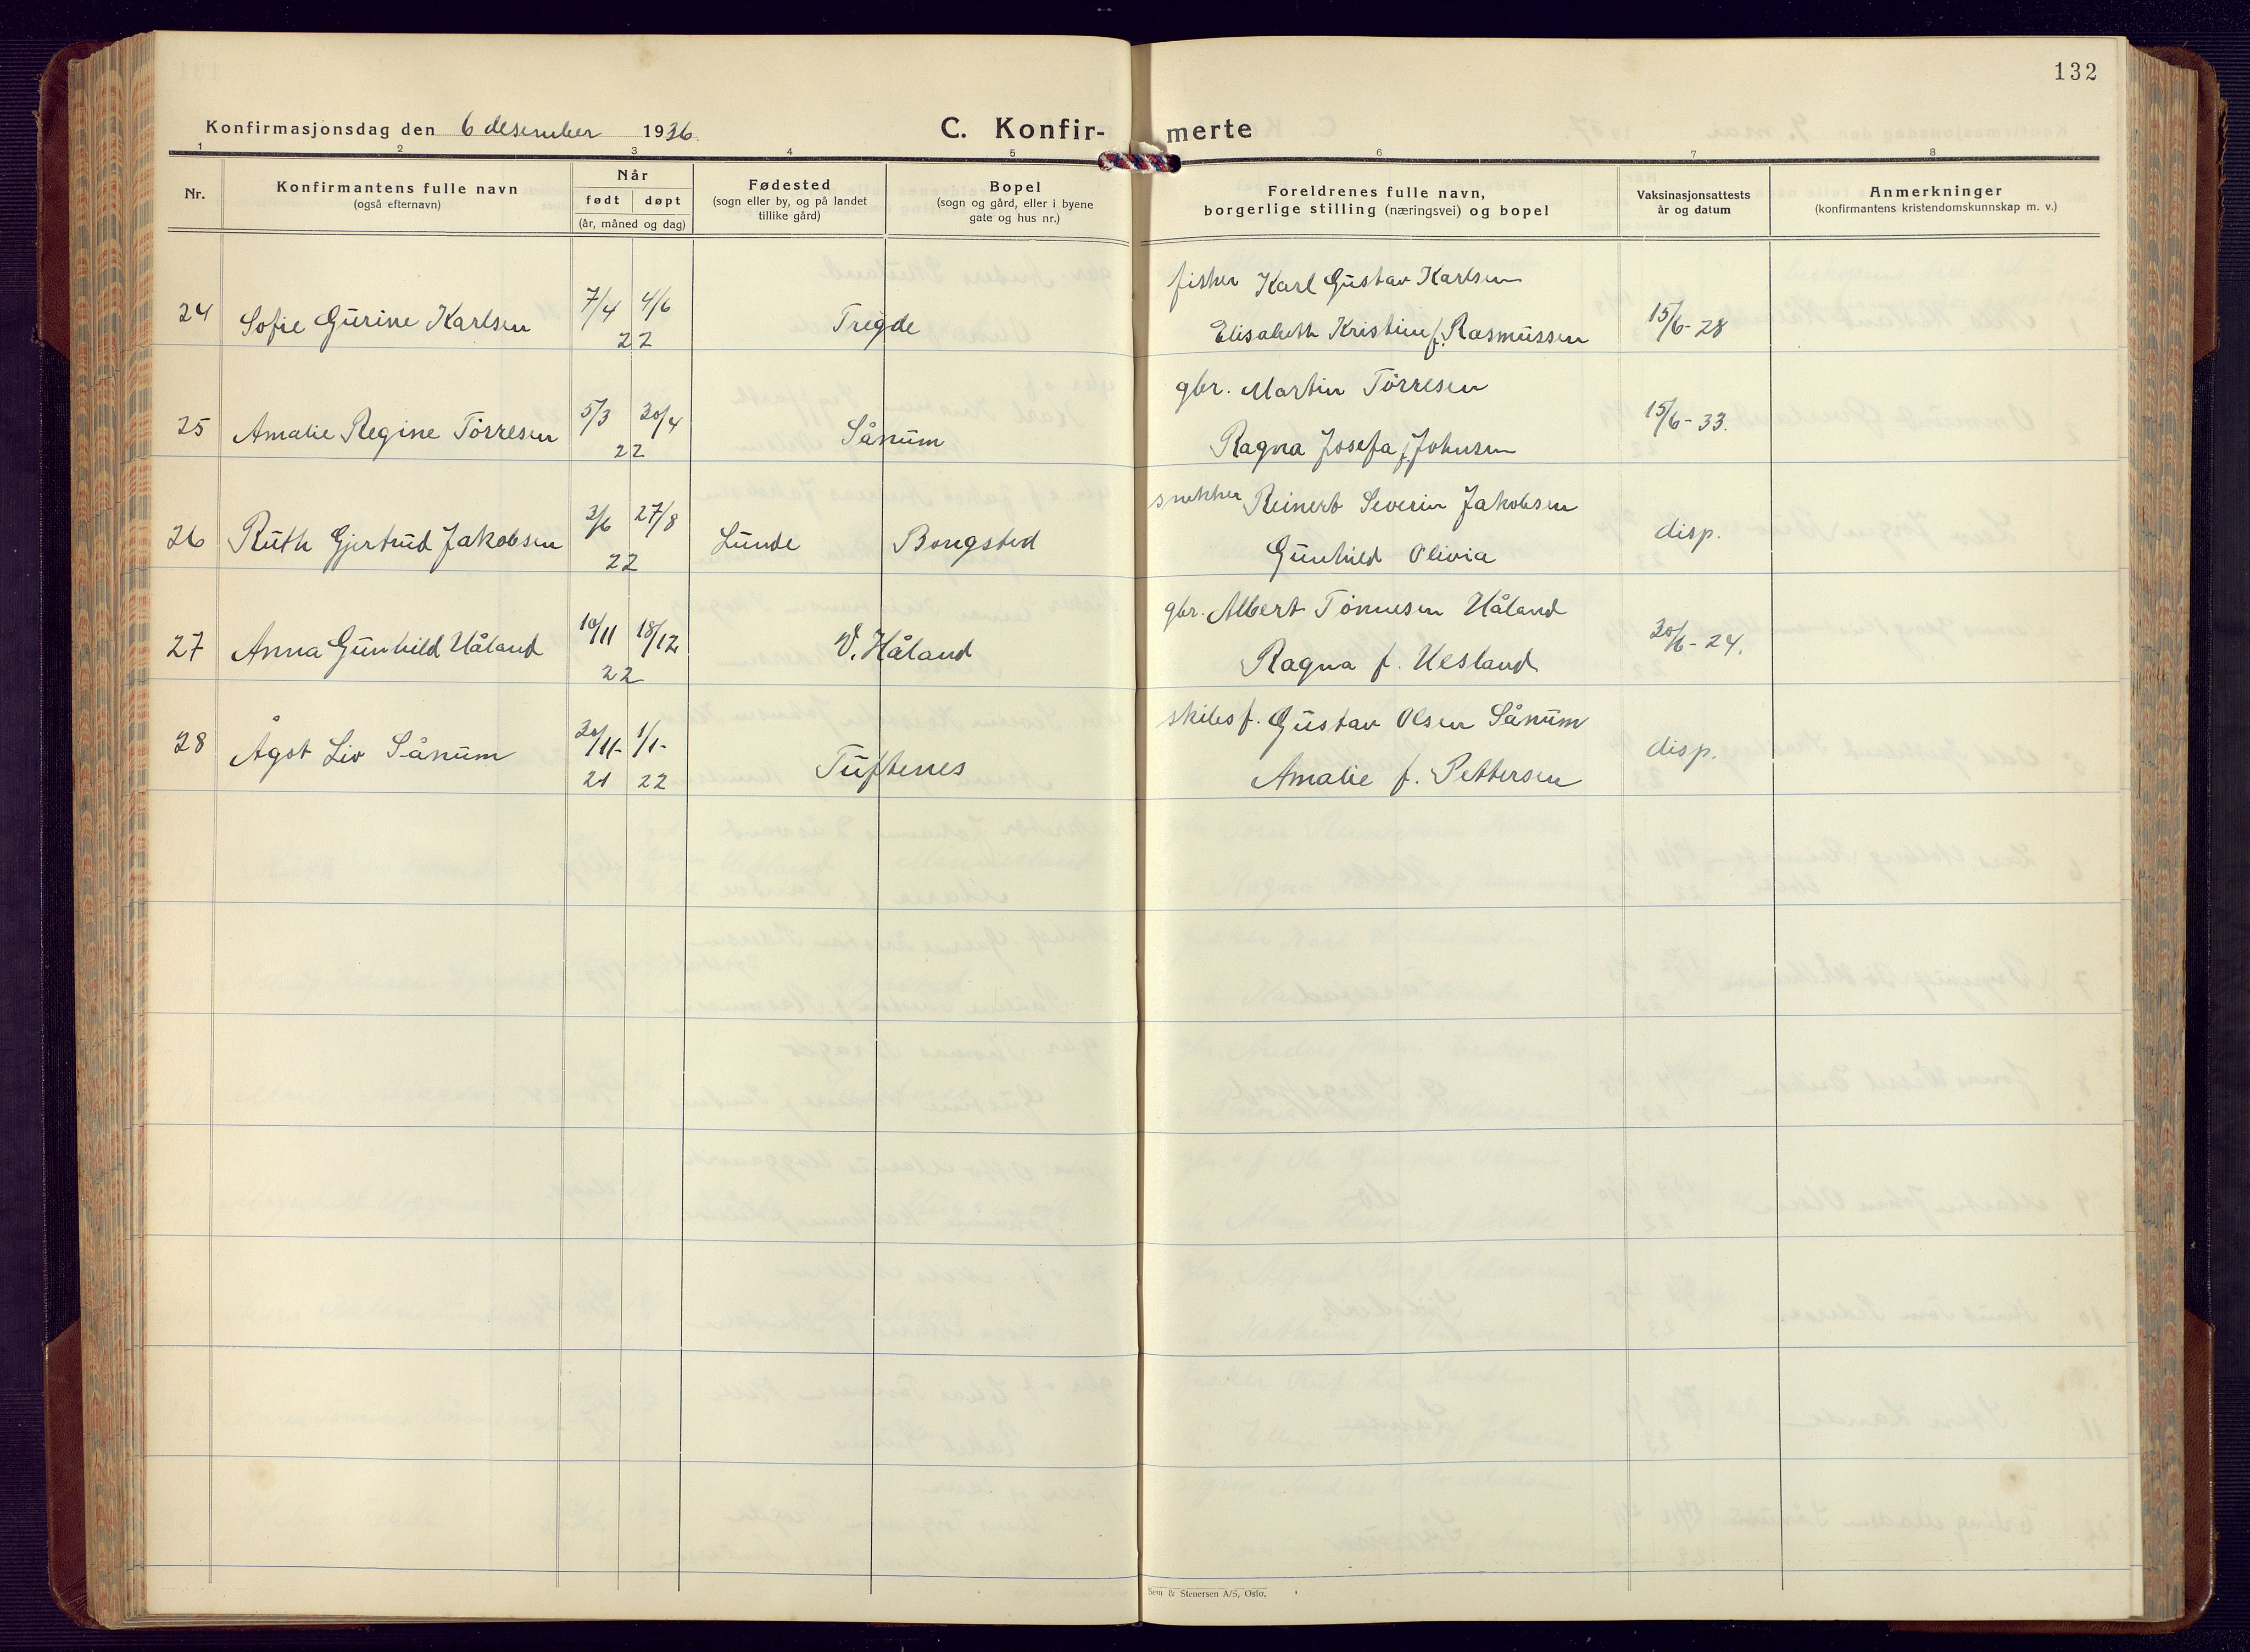 132
Konfirmasjonsdag den 6 desember 1936.
C. Konfir- merte
1 2 3 4 5 6 7 8
Nr.
Konfirmantens fulle navn
(også efternavn)
Når
født døpt
(år, måned og dag)
Fødested
(sogn eller by, og på landet
tillike gård)
Bopel
(sogn og gård, eller i byene
gate og hus nr.)
Foreldrenes fulle navn,
borgerlige stilling (næringsvei) og bopel
Vaksinasjonsattests
år og datum
Anmerkninger
(konfirmantens kristendomskunnskap m. v.)
fisker Karl Gustav Karlsen
24 Sofie Gurine Karlsen 7/4 4/6 Tregde Elisabeth Kristine f. Rasmussen 15/6-28
22
gbr. Martin Tørresen
25 Amalie Regine Tørresen 5/3 30/4 Sånum Ragna Josefa f. Johnsen 15/6-33.
22
snekker Reinert Severin Jakobsen
26 Ruth Gjertrud Jakobsen 3/6 27/8 Lunde Bongsted Gunhild Olivia disp.
22
gbr. Albert Tønnesen Håland
27 Anna Gunhild Håland 10/11 18/12 V. Håland Ragna f. Uesland 30/6-24.
22
skibsf. Gustav Olsen Sånum
28 Ågot Liv Sånum 30/11- 1/1- Tuftenes Amalie f. Pettersen disp.
21 22
Sem & Stenersen A/S, Oslo.